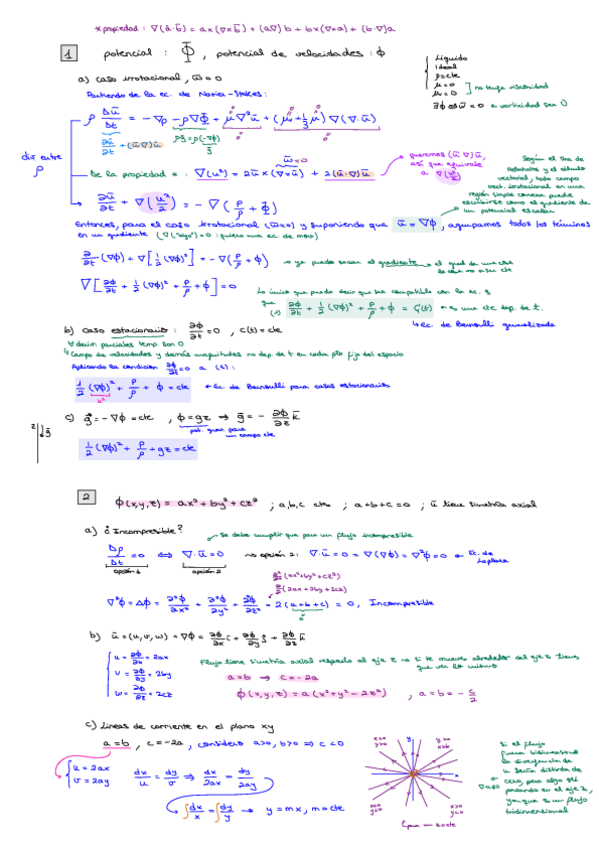 * propiedad : ∇(ā·b̄) = a×(∇×b̄) + (a∇)b + b×(∇×a) + (b·∇)a
1 potencial : Φ , potencial de velocidades : ϕ
Líquido
Ideal
ρ=cte
μ=0
μᵥ=0 no tenga viscosidad
a) caso irrotacional, ω̄=0
Partiendo de la ec. de Navier-Stokes :
ρ Δū/Δt = -∇p - ρ∇Φ + μ∇²ū + (μᵥ + 1/3 μ) ∇(∇·ū)
ρḡ = ρ(-∇ϕ)
∂ū/∂t + (ū·∇)ū
div entre ρ
De la propiedad * : ∇(u²) = 2ū×(∇×ū) + 2(ū·∇)ū
ω̄=0
queremos (ū·∇)ū, así que equivale a ∇(u²/2)
∂ū/∂t + ∇(u²/2) = -∇(p/ρ + Φ)
Según el tma de Helmholtz y el cálculo vectorial, todo campo vect. irrotacional en una región simple conexa puede escribirse como el gradiente de un potencial escalar
Entonces, para el caso irrotacional (ω̄=0) y suponiendo que ū = ∇ϕ, agrupamos todos los términos
en un gradiente (∇("algo")=0 : quiero una ec. de mov)
∂/∂t (∇ϕ) + ∇[1/2 (∇ϕ)²] = -∇(p/ρ + ϕ) → ya puedo sacar el gradiente
∇[∂ϕ/∂t + 1/2 (∇ϕ)² + p/ρ + ϕ] = 0
Lo único que puedo decir que sea compatible con la ec. es
que (1) ∂ϕ/∂t + 1/2 (∇ϕ)² + p/ρ + ϕ = C(t) → es una cte dep. de t.
↳ Ec. de Bernoulli generalizada
b) caso estacionario : ∂ϕ/∂t = 0 , C(t) = cte
∀ deriv parciales temp son 0
↳ Campo de velocidades y demás magnitudes no dep. de t en cada pto fijo del espacio
Aplicando la condición ∂ϕ/∂t=0 a (1) :
1/2 (∇ϕ)² + p/ρ + ϕ = cte ← Ec. de Bernoulli para casos estacionarios
u²
c) ḡ = -∇ϕ = cte , ϕ = gz ⇒ ḡ = - ∂ϕ/∂z k̄
pot. grav para un campo cte
z ḡ
1/2 (∇ϕ)² + p/ρ + gz = cte
2 ϕ(x,y,z) = ax² + by² + cz² ; a,b,c ctes ; a+b+c=0 ; ū tiene simetría axial
a) ¿Incompresible?
→ Se debe cumplir que para un flujo incompresible
Δρ/Δt = 0 ⟺ ∇·ū = 0 → opción 2 : ∇·ū = 0 = ∇(∇ϕ) = ∇²ϕ = 0 ← Ec. de Laplace
opción 1 opción 2
∂²/∂x² (ax²+by²+cz²)
∂/∂x (2ax+2by+2cz)
∇²ϕ = Δϕ = ∂²ϕ/∂x² + ∂²ϕ/∂y² + ∂²ϕ/∂z² = 2(a+b+c) = 0, Incompresible
0
b) ū = (u,v,w) = ∇ϕ = ∂ϕ/∂x ī + ∂ϕ/∂y j̄ + ∂ϕ/∂z k̄
u = ∂ϕ/∂x = 2ax
v = ∂ϕ/∂y = 2by
w = ∂ϕ/∂z = 2cz
Flujo tiene simetría axial respecto al eje z → si te mueves alrededor del eje z tienes
que ver lo mismo
a=b ⇒ c=-2a
ϕ(x,y,z) = a(x²+y²-2z²) , a=b=-c/2
c) Líneas de corriente en el plano xy
a=b , c=-2a , considero a>0, b>0 ⇒ c<0
u = 2ax
v = 2ay
dx/u = dy/v ⇒ dx/2ax = dy/2ay
∫dx/x = ∫dy/y → y=mx, m=cte
x<0 y>0
y
x>0 y>0
x
x<0 y<0
x>0 y<0
para un z=cte
Si el flujo fuera bidimensional la divergencia de ū sería distinta de cero, pero algo está pasando en el eje z, ya que es un flujo tridimensional